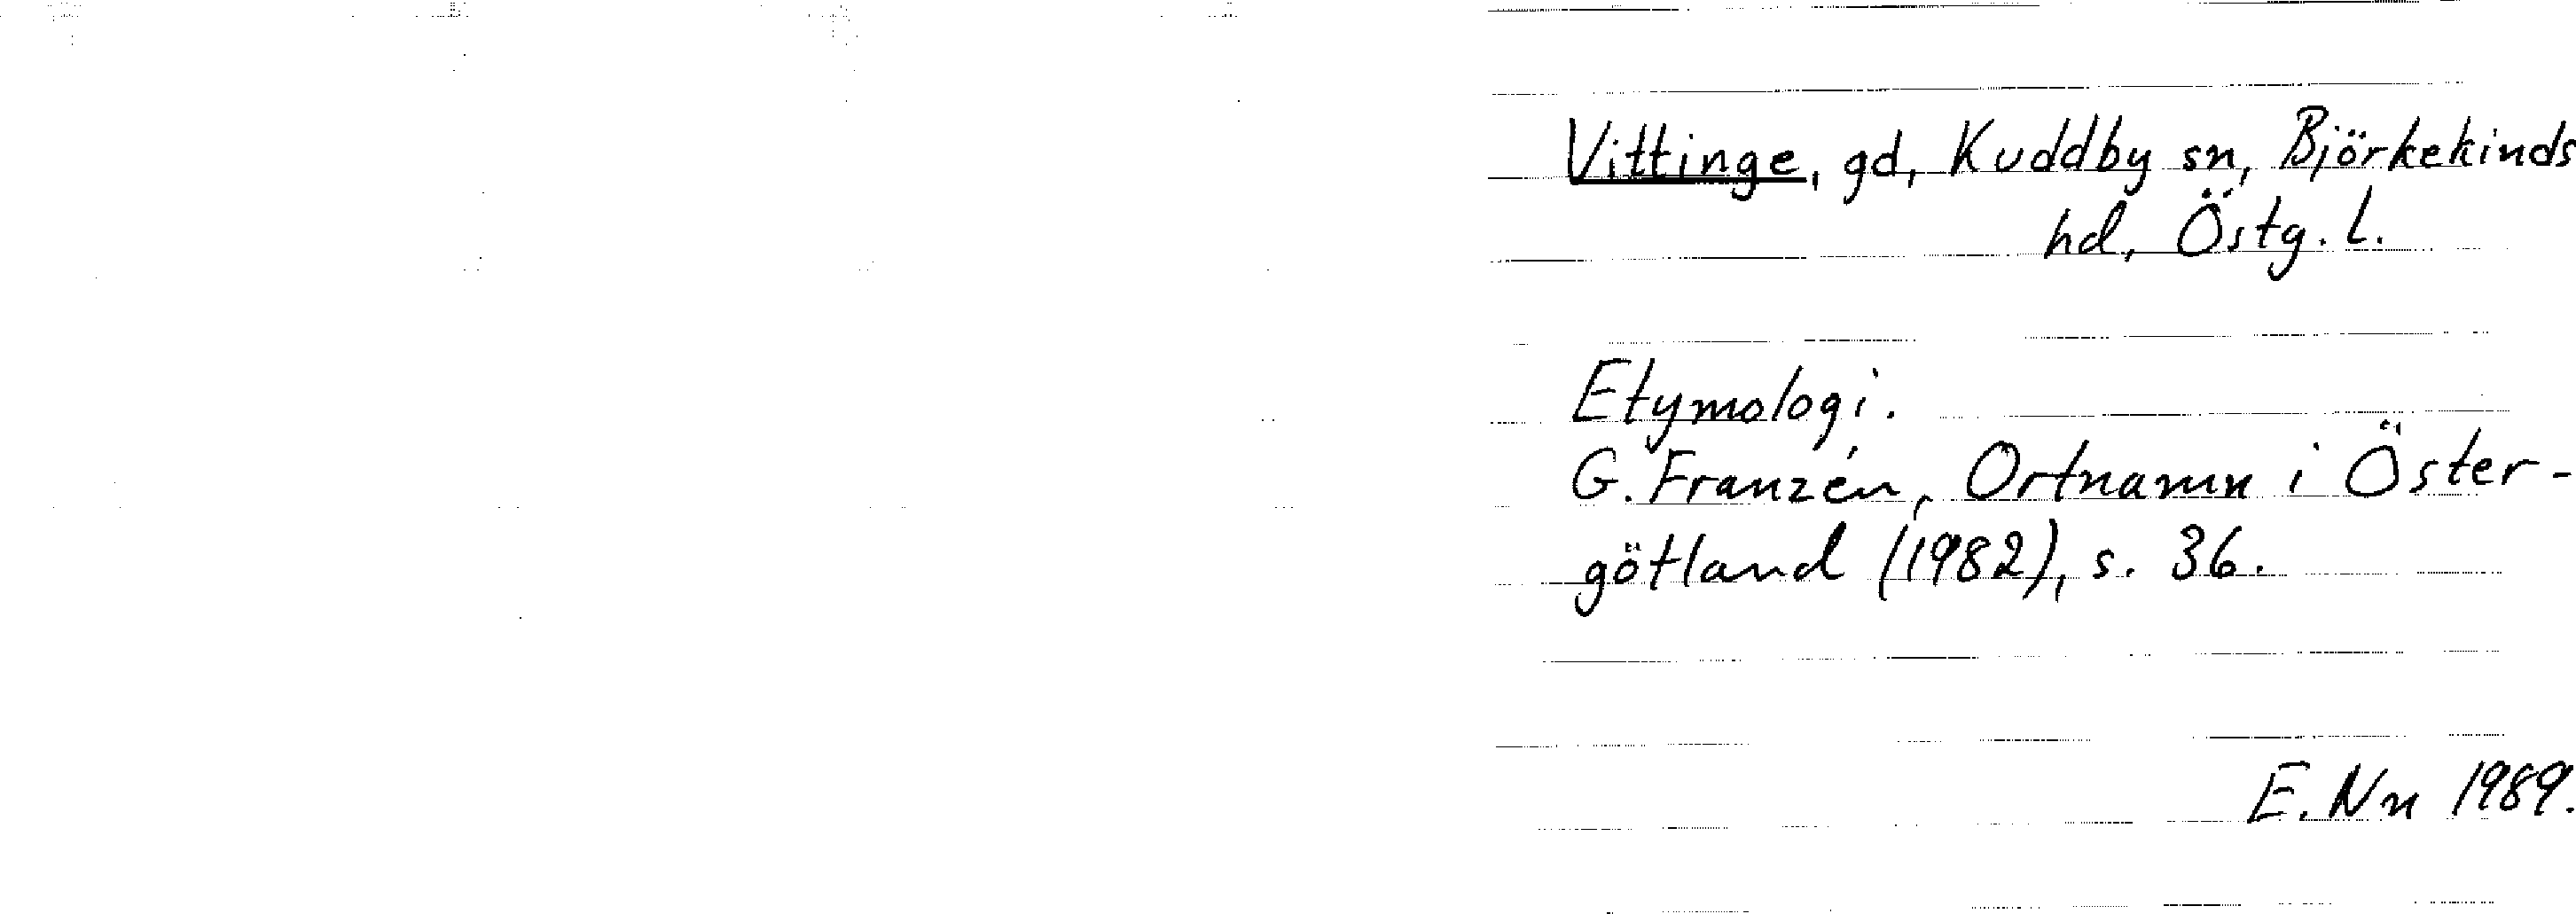 Vittinge, gd, Kuddby sn, Björkekinds
hd, Östg. l.
Etymologi.
G. Franzén, Ortnamn i Öster-
götland (1982), s. 36.
E. Nn 1989.